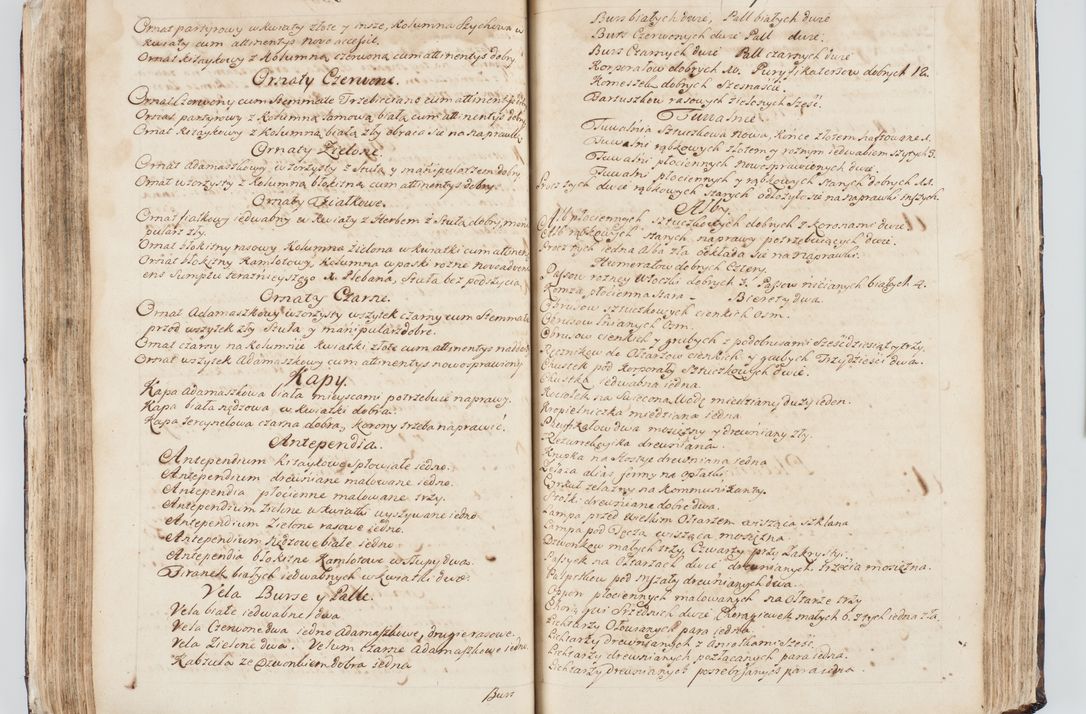 Ornat partyrowy w kwiaty złote y insze, Kolumna Sztychowa w
kwiaty cum attinentys novo accessit.
Ornat kitaykowy z Kolumną czerwoną cum attinentys dobry.
Ornaty Czerwone.
Ornat Czerwony cum Stemmate Trzebiciano cum attinentys
Ornat partyrowy z kolumną lamową białą cum attinentys dobry
Ornat kitaykowy z kolumną białą zły obraca się na naprawkę
Ornaty Zielone.
Ornat adamaszkowy wzorzysty z Stułą y manipularzem dobry
Ornat wzorzysty z Kolumną błękitną cum attinentys dobry.
Ornaty Fialkowe.
Ornat fialkowy iedwabny w kwiaty z Herbem z Stułą dobry, mani
pularz zły.
Ornat błękitny rasowy Kolumna zielona w kwiatki cum attinen
Ornat błękitny Kamlotowy, Kolumna w paski rożne nove adven
ens Sumptu teraznieyszego X. Plebana, Stuła bez podszycia
Ornaty Czarne.
Ornat Adamaszkowy wzorzysty wszytek czarny cum Stemmate
przod wszytek zły Stuła y manipularz dobre.
Ornat czarny na kolumnie kwiatki złote cum attinentys nadder
Ornat wszytek Adamaszkowy cum attinentys nowosprawiony
Kapy.
Kapa Adamaszkowa biała mieyscami potrzebuie naprawy.
Kapa biała rądzowa w kwiatki dobra.
Kapa tercynelowa czarna dobra, korony trzeba naprawić.
Antependia.
Antependium kitaykowe Spłowiałe iedno.
Antependium drewniane malowane iedno.
Antependia płocienne malowane trzy.
Antependium zielone w kwiatki wyszywane iedno
Antependium Zielone rasowe iedno.
Antependium Rądzowe białe iedno
Antependia błękitne Kamlotowe w słupy dwa.
Firanek białych iedwabnych w kwiatki dwie.
Vela Burse y Palle.
Vela białe iedwabne dwa
Vela Czerwone dwa iedno Adamaszkowe, drugie rasowe.
Vela Zielone dwa. Velum czarne Adamaszkowe iedno.
Kabzula ze Dzwonkiem dobra iedna
Burs
Burs białych dwie, Pall białych dwie
Burs Czerwonych dwie Pall dwie.
Burs Czarnych dwie Pall czarnych dwie
Korporałow dobrych 10. Puryfikaterzow dobrych 12.
Komeszek dobrych Szesnaście.
Bartuszkow rasowych zielonych Sześć.
Tuwalnie
Tuwalnia Sztuczkowa nowa, Końce złotem haftowane 1.
Tuwalni rąbkowych złotem y rożnym iedwabiem szytych 5.
Tuwalni płociennych nowosprawionych dwie.
Tuwalni płociennych y rąbkowych Starych dobrych 11.
Procz tych dwie rąbkowych starych odłożyło się na naprawki inszych.
Alby
Alb płociennych Sztuczkowych dobrych z koronami dwie
Alb rąbkowych starych, naprawy potrzebuiących dwie.
Procz tych iedna Alba zła odkłada się na naprawki.
Humerałow dobrych Cztery.
Passow rożney włoczki dobrych 3. Passow nicianych białych 4.
Komża płocienna stara - Birety dwa.
Obrusow Sztuczkowych cienkich osm.
Obrusow lnianych Osm.
Obrusow cienkich y grubych z podobrusami sześćdziesiąt y trzy.
Ręcznikow do Ołtarzow cienkich y grubych Trzydzieści dwa.
Chustek pod korporały Sztuczkowych dwie.
Chustka iedwabna iedna.
Kociołek na święconą Wodę miedziany duży ieden.
Kropielniczka miedziana iedna
Pacyfikałow dwa mosiężny y drewniany zły.
Rezurrekcyika drewniana.
Puszka na Hostye drewniana iedna
Żelaza alias formy na opłatki,
Cyrkuł żelazny na Kommunikanty.
Stołki drewniane dobre dwa.
Lampa przed wielkim Ołtarzem wisząca szklana
Lampa pod Tęczą wisząca mosiężna
Dzwonkow małych trzy, Czwarty przy Zakrysty.
Passyek na Ołtarzach dwie drewnianych, trzecia mosiężna.
Pulpitkow pod mszały drewnianych dwa.
Oppon płociennych malowanych na Ołtarze trzy
Chorągwi Srzednich dwie Chorągiewek małych 6. z tych iedna zła.
Lichtarzy Ołowianych para iedna.
Lichtarzy drewnianych z Aniołkami sześć.
Lichtarzy drewnianych pozłacanych para iedna.
Lichtarzy drewnianych posrebrzanych para iedna